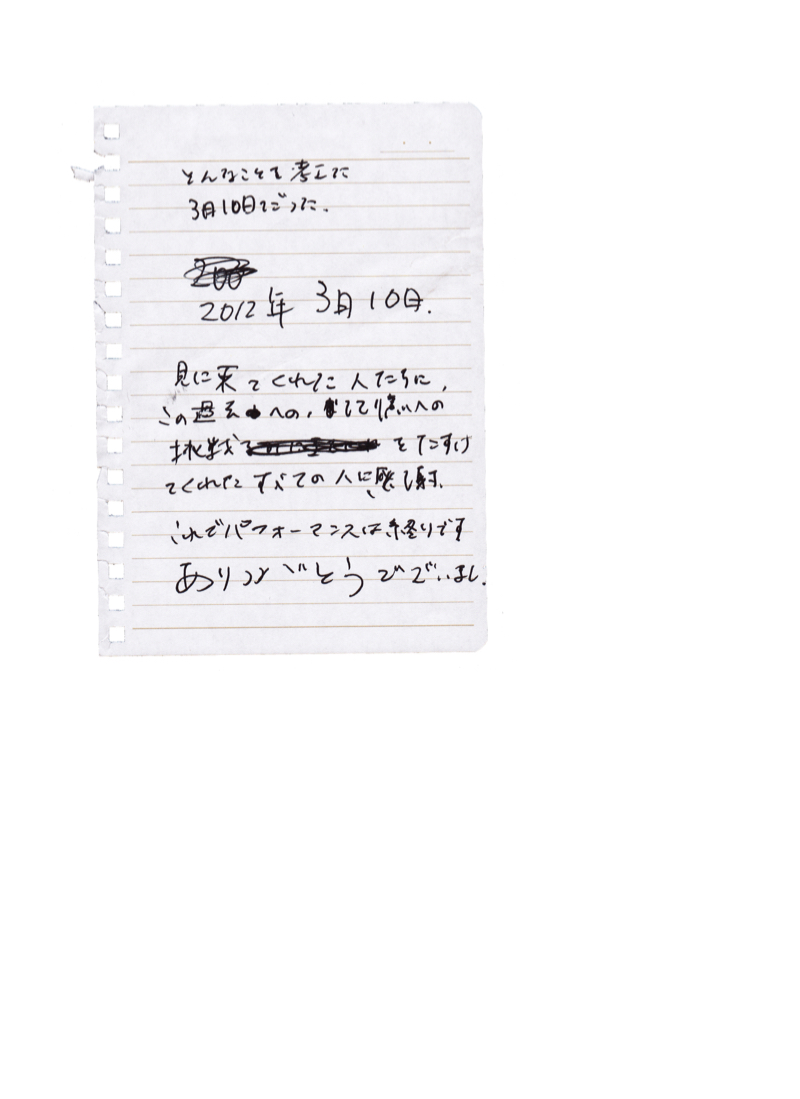 そんなことを考えた
3月10日だった.
2012年 3月10日.
見に来てくれた人たちに,
この過去への,
挑戦 をたすけ
てくれたすべての人に感謝.
これでパフォーマンスは終りです
ありがとうございまし.